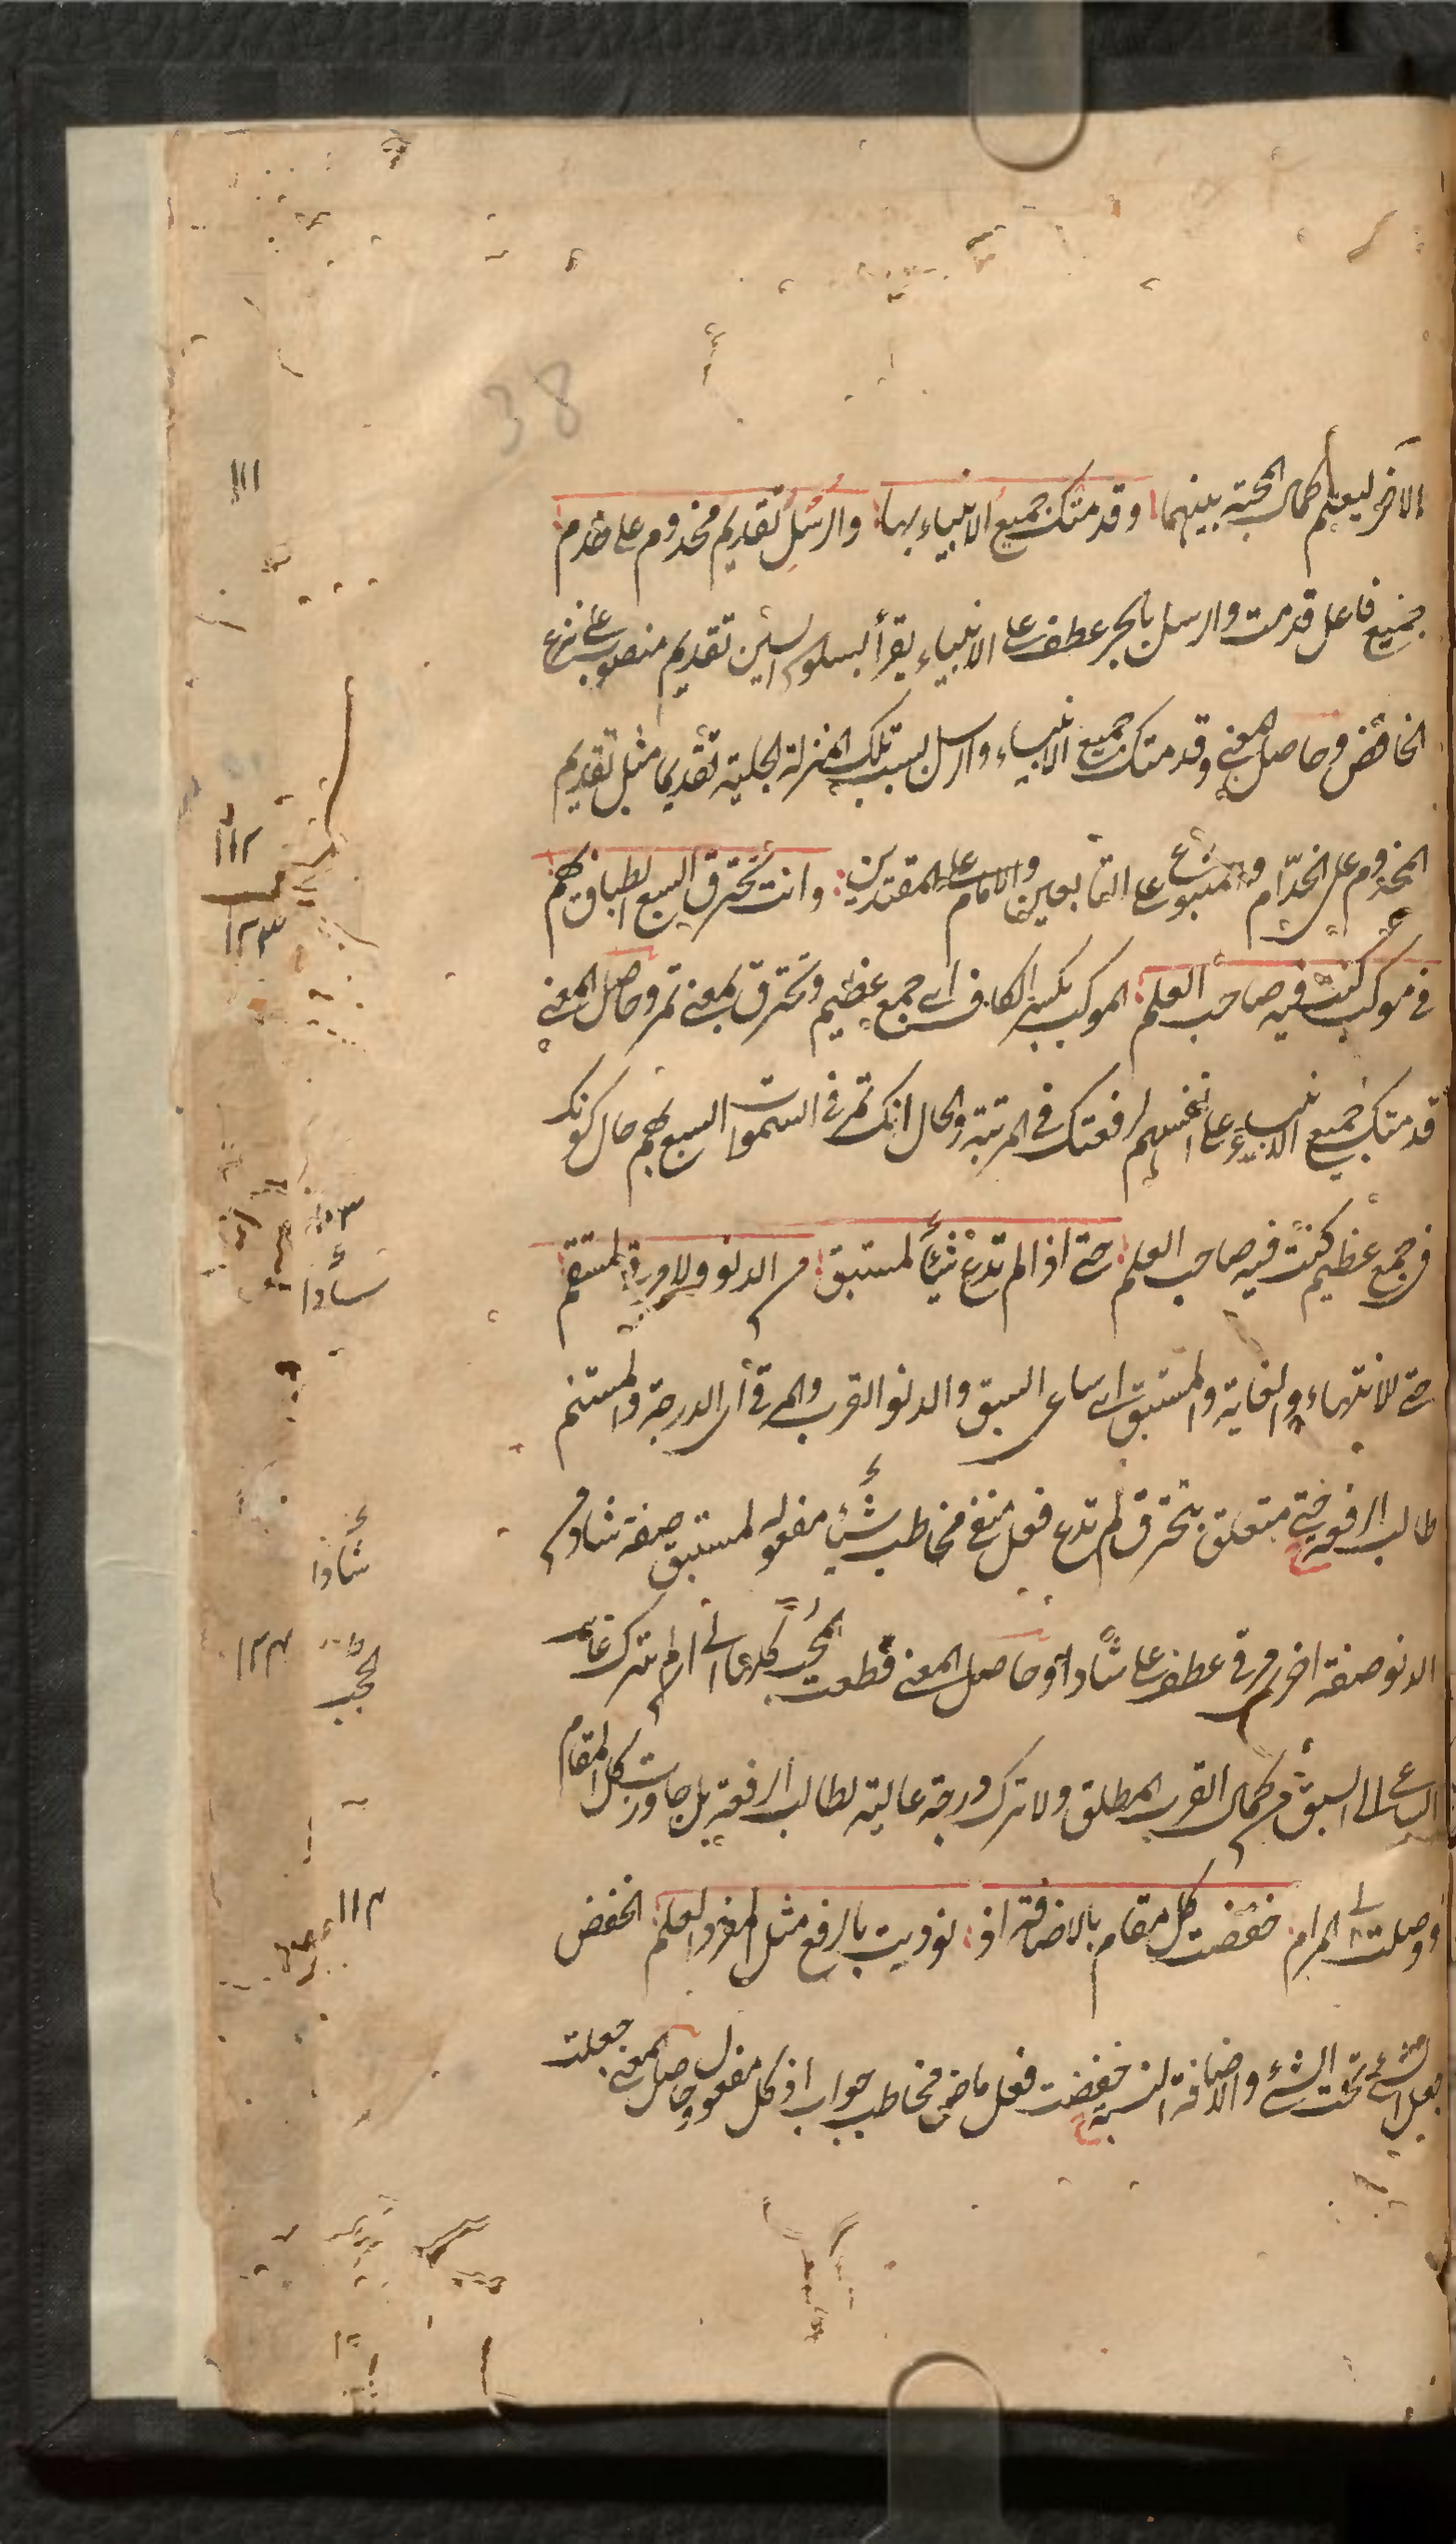 38
الاخر ليعلم كمال المحبة بينهما وقدمتك جميع الانبياء بها والرسل تقديم مخدوم على خدم
جميع فاعل قدمت والرسل بالجر عطف على الانبياء يقرأ بسكون السين تقديم منصوب على نزع
الخافض وحاصل المعنى وقدمتك جميع الانبياء والرسل بسبب تلك المنزلة الجلية تقديما مثل تقديم
المخدوم على الخدّام والمتبوع على التابعين والامام على المقتدين وانت تخترق السبع الطباق بهم
فى موكب كنت فيه صاحب العلم الموكب بكسر الكاف اى جمع عظيم وتخترق بمعنى تمر وحاصل المعنى
قدمتك جميع الانبياء على انفسهم لرفعتك فى المرتبة والحال انك تمر فى السموات السبع بهم حال كونك
فى جمع عظيم كنت فيه صاحب العلم حتى اذا لم تدع شيأ لمستبق من الدنو ولا مرقى لمستنم
حتى للانتهاء والغاية والمستبق اى ساعى السبق والدنو القرب والمرقى اى الدرجة والمستنم
طالب الرفعة حتى متعلق بتخترق لم تدع فعل منفى مخاطب شيأ مفعوله لمستبق صفة شاوا من
الدنو صفة اخرى مرقى عطف على شاوا وحاصل المعنى قطعت الحجب كلها الى ان لم تترك غاية
الساعى الى السبق من كمال القرب المطلق ولا ترك درجة عالية لطالب الرفعة بل جاوزت كل المقام
ووصلت الى المرام خفضت كل مقام بالاضافة اذ نوديت بالرفع مثل المفرد العلم الخفض
جعل الشىء تحت الشىء والاضافة النسبة خفضت فعل ماض مخاطب جواب اذ كل مفعول وحاصل المعنى جعلت
١١١
١١٢
١٢٣
شأوا
شأوا
الحجب
١١٣